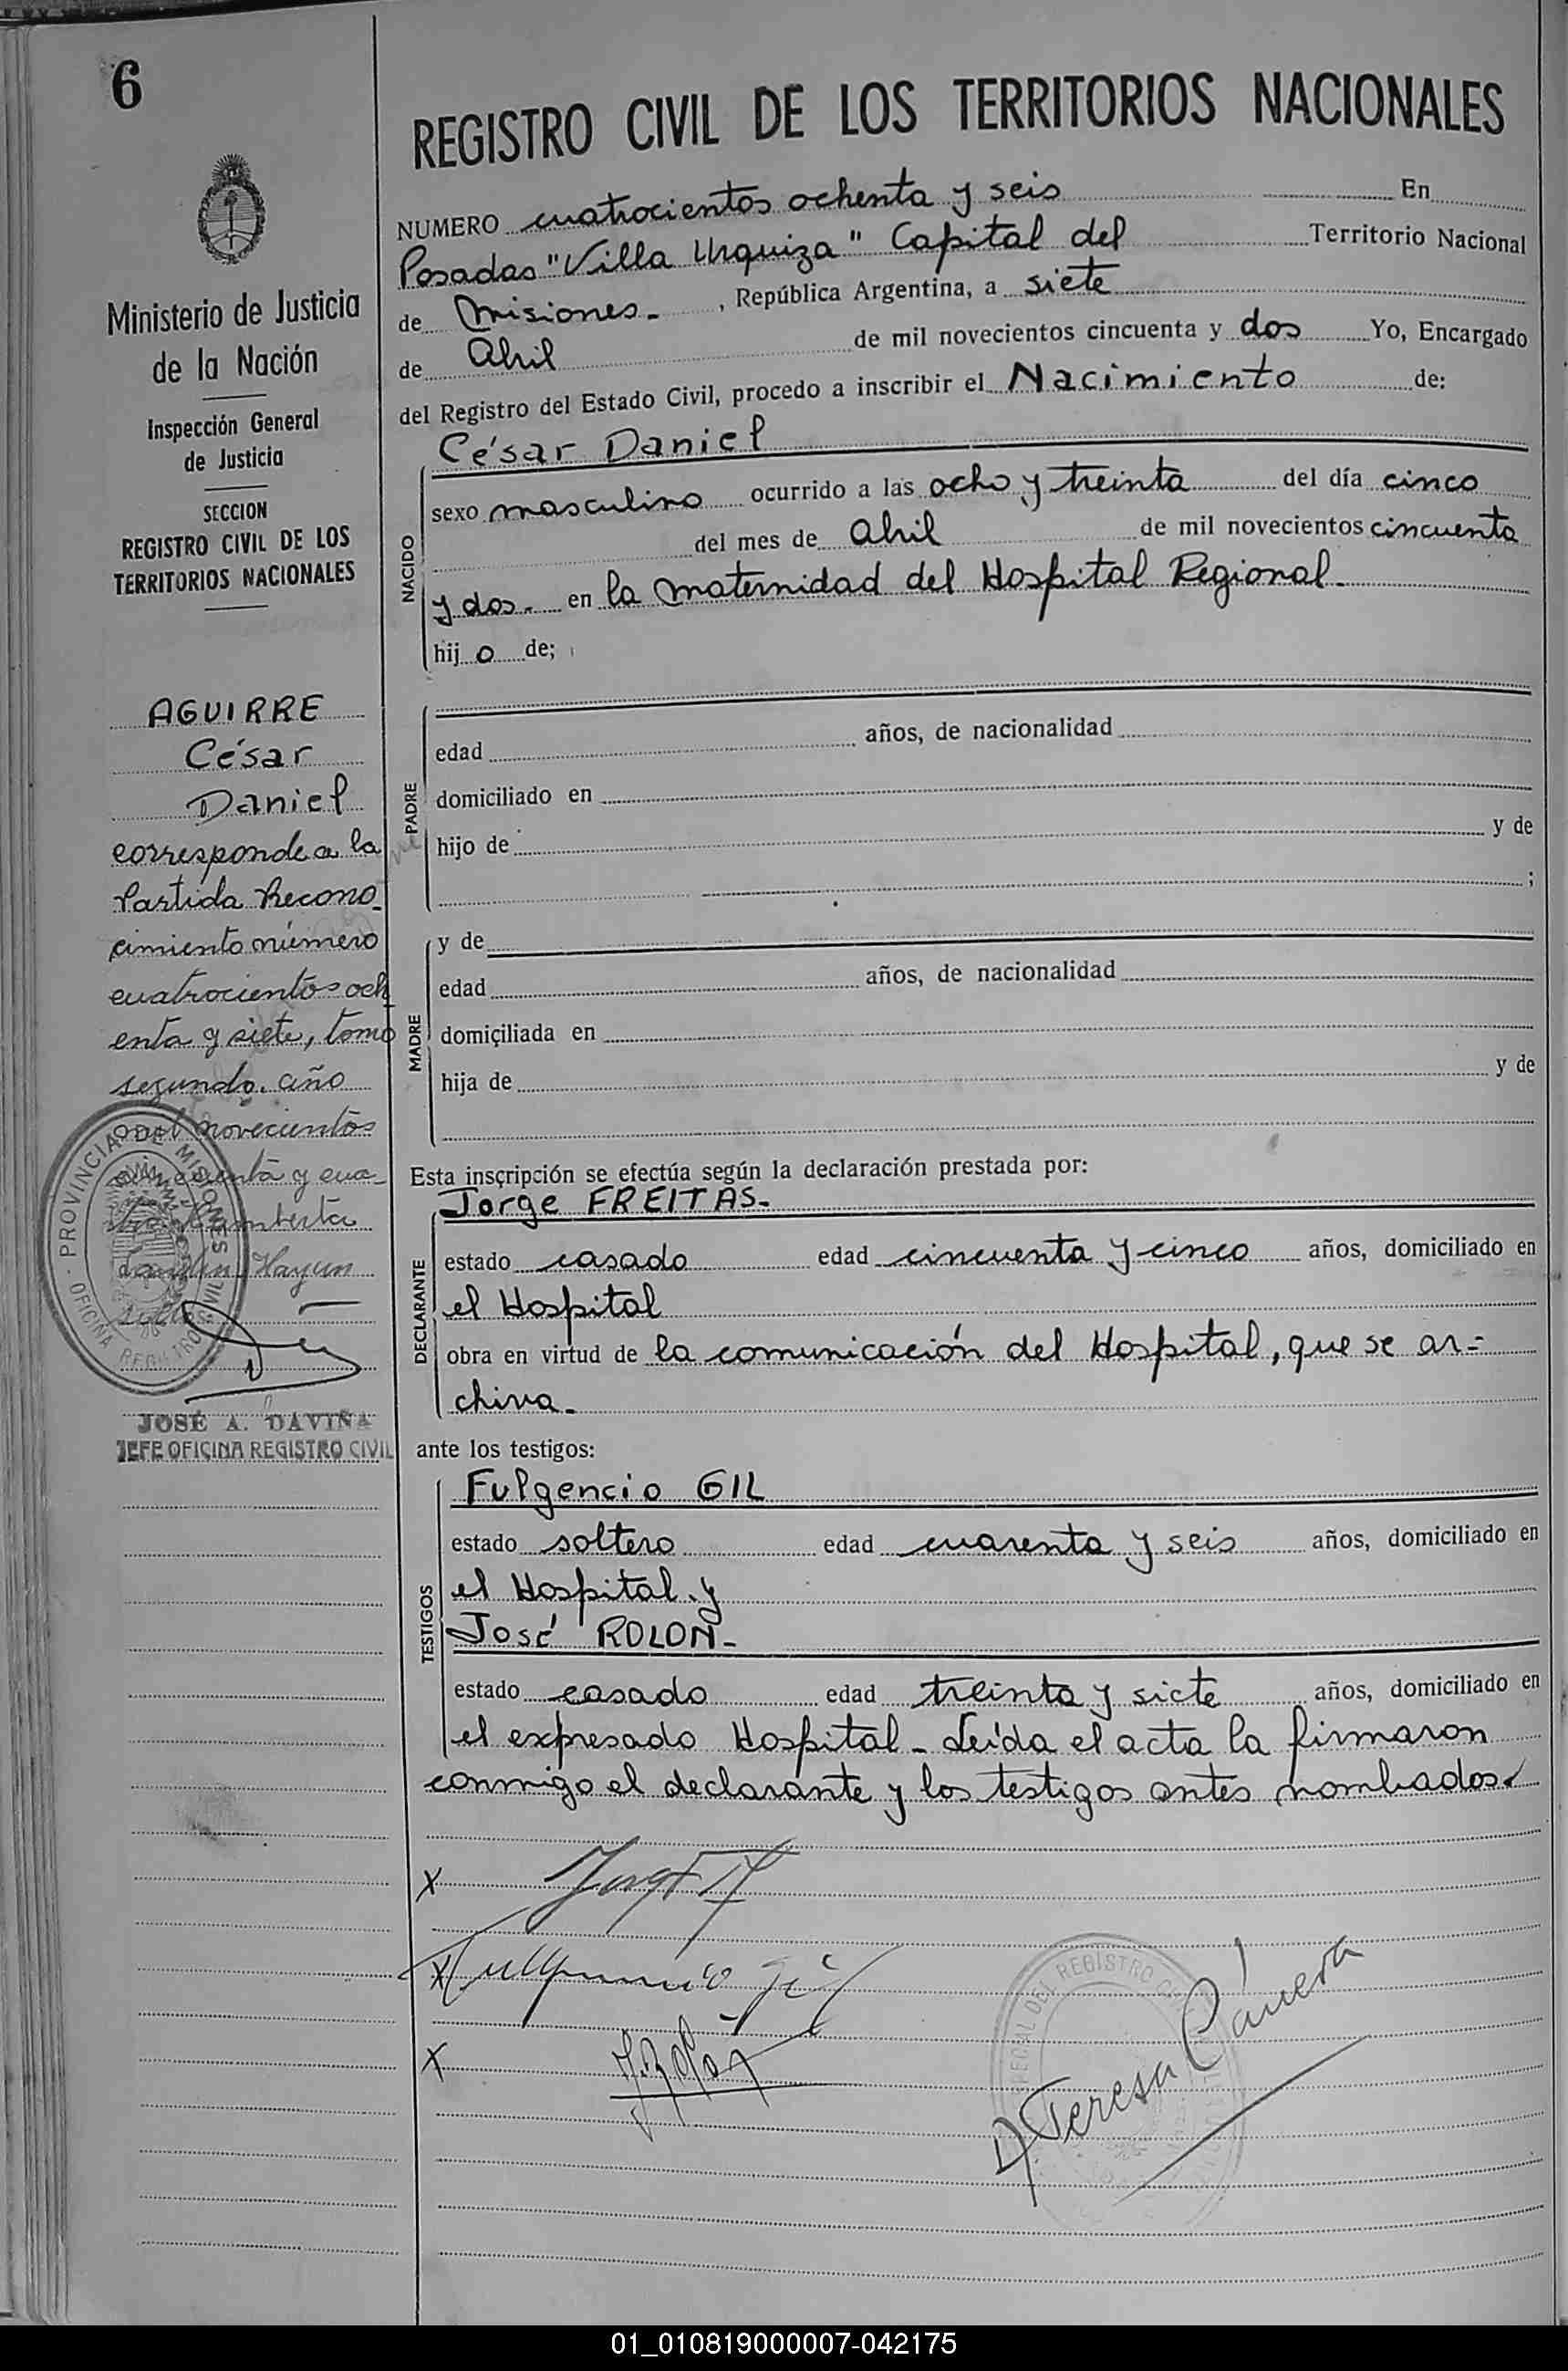 6
Ministerio de Justicia
de la Nación
Inspección General
de Justicia
SECCION
REGISTRO CIVIL DE LOS
TERRITORIOS NACIONALES
AGUIRRE
César
Daniel
corresponde a la
Partida Recono_
cimiento número
cuatrocientos och
enta y siete, tomo
segundo. año
mil novecientos
cincuenta y cua_
tro.
PROVINCIA DE MISIONES
OFICINA REGISTRO CIVIL
JOSÉ A. DAVIÑA
JEFE OFICINA REGISTRO CIVIL
REGISTRO CIVIL DE LOS TERRITORIOS NACIONALES
NUMERO cuatrocientos ochenta y seis En
Posadas "Villa Urquiza" Capital del Territorio Nacional
de Misiones- , República Argentina, a siete
de Abril de mil novecientos cincuenta y dos Yo, Encargado
del Registro del Estado Civil, procedo a inscribir el Nacimiento de:
César Daniel
NACIDO
sexo masculino ocurrido a las ocho y treinta del día cinco
del mes de Abril de mil novecientos cincuenta
y dos. en la maternidad del Hospital Regional.
hij o de;
PADRE
edad años, de nacionalidad
domiciliado en
hijo de y de
;
MADRE
y de
edad años, de nacionalidad
domiciliada en
hija de y de
Esta inscripción se efectúa según la declaración prestada por:
Jorge FREITAS-
DECLARANTE
estado casado edad cincuenta y cinco años, domiciliado en
el Hospital
obra en virtud de la comunicación del Hospital, que se ar=
chiva-
ante los testigos:
Fulgencio GIL
TESTIGOS
estado soltero edad cuarenta y seis años, domiciliado en
el Hospital y
José ROLON-
estado casado edad treinta y siete años, domiciliado en
el expresado Hospital - Leída el acta la firmaron
conmigo el declarante y los testigos antes nombrados
x
x Fulgencio Gil
x J. Rolón
Teresa Cánova
01_010819000007-042175